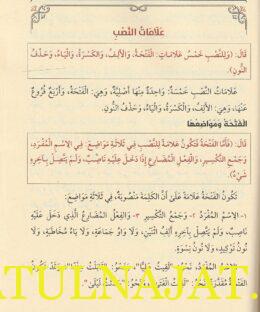 عَلَامَاتُ النَّصْبِ
قَالَ: (وَلِلنَّصْبِ خَمْسُ عَلَامَاتٍ: الْفَتْحَةُ، وَالْأَلِفُ، وَالْكَسْرَةُ، وَالْيَاءُ، وَحَذْفُ
النُّونِ).
عَلَامَاتُ النَّصْبِ خَمْسَةٌ: وَاحِدَةٌ مِنْهَا أَصْلِيَّةٌ، وَهِيَ: الْفَتْحَةُ، وَأَرْبَعٌ فُرُوعٌ
عَنْهَا، وَهِيَ: الْأَلِفُ، وَالْكَسْرَةُ، وَالْيَاءُ، وَحَذْفُ النُّونِ.
الْفَتْحَةُ وَمَوَاضِعُهَا
قَالَ: (فَأَمَّا الْفَتْحَةُ فَتَكُونُ عَلَامَةً لِلنَّصْبِ فِي ثَلَاثَةِ مَوَاضِعَ: فِي الِاسْمِ الْمُفْرَدِ،
وَجَمْعِ التَّكْسِيرِ، وَالْفِعْلِ الْمُضَارِعِ إِذَا دَخَلَ عَلَيْهِ نَاصِبٌ، وَلَمْ يَتَّصِلْ بِآخِرِهِ
شَيْءٌ).
تَكُونُ الْفَتْحَةُ عَلَامَةً عَلَى أَنَّ الْكَلِمَةَ مَنْصُوبَةٌ، فِي ثَلَاثَةِ مَوَاضِعَ:
١- الِاسْمُ الْمُفْرَدُ ٢- وَجَمْعُ التَّكْسِيرِ ٣- وَالْفِعْلُ الْمُضَارِعُ الَّذِي دَخَلَ عَلَيْهِ
نَاصِبٌ، وَلَمْ يَتَّصِلْ بِآخِرِهِ أَلِفُ اثْنَيْنِ، وَلَا وَاوُ جَمَاعَةٍ، وَلَا يَاءُ مُخَاطَبَةٍ، وَلَا
نُونُ تَوْكِيدٍ، وَلَا نُونُ نِسْوَةٍ.
الِاسْمُ الْمُفْرَدُ، نَحْوُ: «لَقِيتُ عَلِيًّا»، وَنَحْوُ: «قَابَلْتُ هِنْدًا»
الْفَتْحَةُ مُقَدَّرَةً نَحْوُ: «لَقِيتُ الْفَتَى» وَنَحْوُ: «حَدَّثْتُ لَيْلَى».
ATULNAJAT.